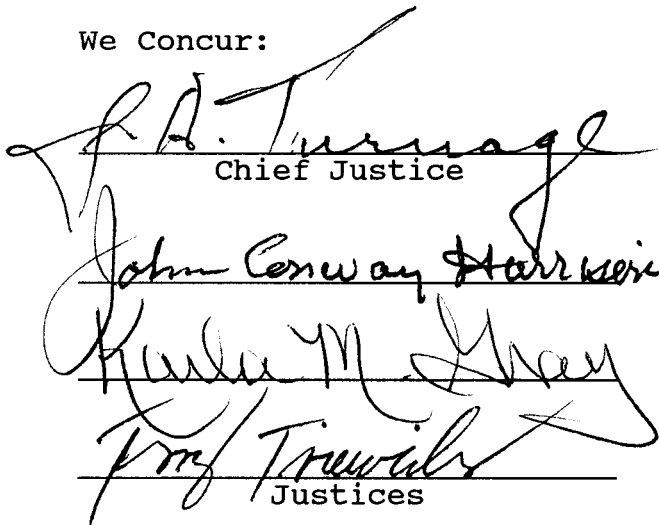 We Concur:
J. A. Turnage
Chief Justice
John Conway Harrison
Karla M. Gray
Terry Trieweiler
Justices